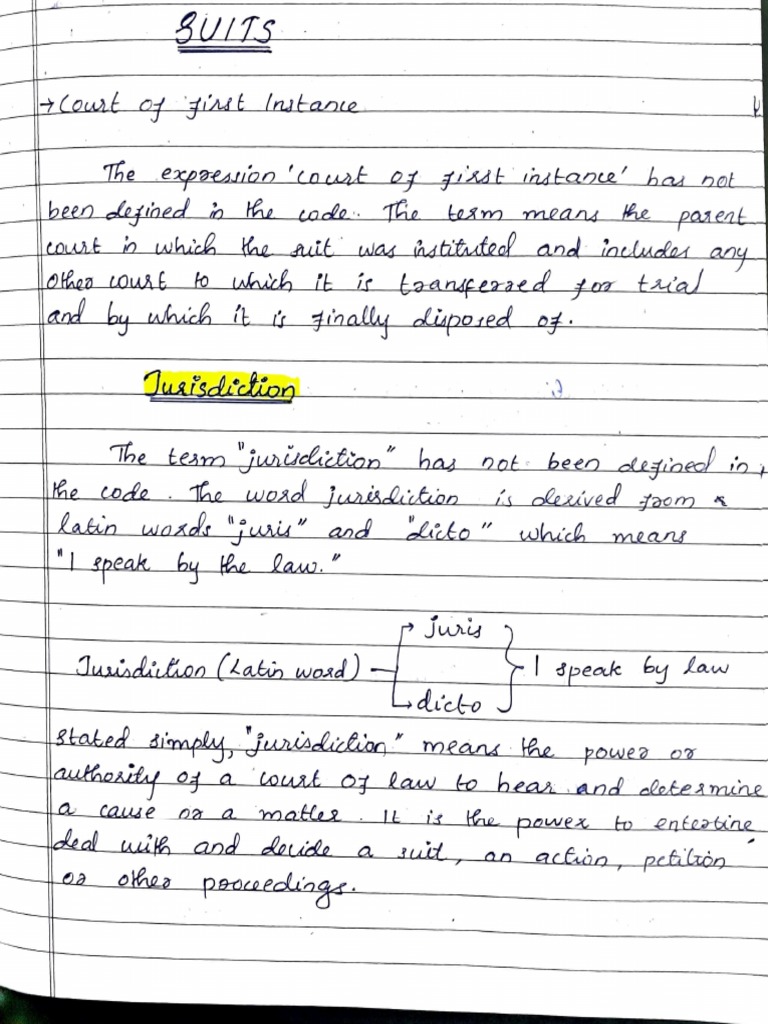 SUITS
→ Court of first Instance
The expression 'court of first instance' has not
been defined in the code. The term means the parent
court in which the suit was instituted and includes any
other court to which it is transferred for trial
and by which it is finally disposed of.
Jurisdiction
The term "jurisdiction" has not been defined in
the code. The word jurisdiction is derived from
latin words "juris" and "dicto" which means
"I speak by the law."
Jurisdiction (Latin word) → juris → dicto } I speak by law
stated simply, "jurisdiction" means the power or
authority of a court of law to hear and determine
a cause or a matter. It is the power to entertine,
deal with and decide a suit, an action, petition
or other proceedings.